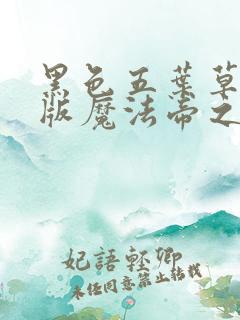 黑色五葉草
版魔法帝之
妃語輕卿
未經同意禁止轉載